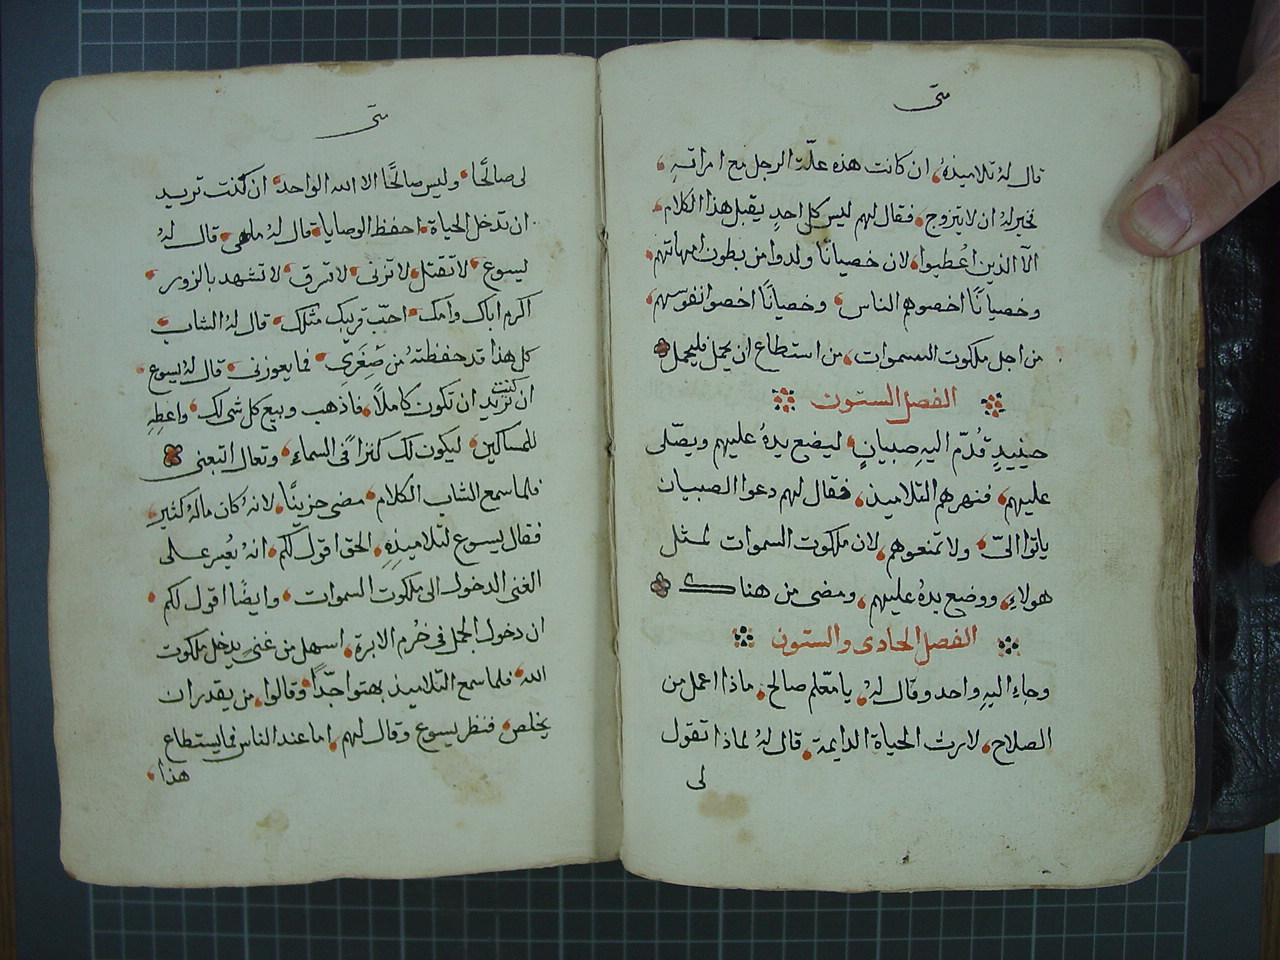 متى
قال له تلاميذه، ان كانت هذه علّة الرجل مع امراته،
فخير له ان لا يتزوج، فقال لهم ليس كل احدٍ يقبل هذا الكلام،
الّا الذين اعُطيوا، لان خصيانًا ولدوا من بطون امهاتهم،
وخصيانًا اخصوهم الناس، وخصيانًا اخصوا نفوسهم،
من اجل ملكوت السموات، من استطاع ان يحمل فليحمل،
الفصل الستون
حينيدٍ قُدّم اليه صبيان، ليضع يدهُ عليهم ويصّلى
عليهم، فنهرهم التلاميذ، فقال لهم دعوا الصبيان
ياتوا اليّ، ولا تمنعوهم، لان ملكوت السموات لمثل
هولاءِ، ووضع يدهُ عليهم، ومضى من هناك
الفصل الحادى والستون
وجاء اليهِ واحد وقال لهُ، يا معّلم صالح، ماذا اعمل من
الصلاح، لارث الحياة الدايمة، قال لهُ لماذا تقول
لى
متى
لى صالحًا، وليس صالحًا الا الله الواحد، ان كنت تريد
ان تدخل الحياة، احفظ الوصايا، قال له ما هى، قال لهُ
ليسوع، لا تقتل، لا تزنى، لا تسرق، لا تشهد بالزور،
اكرم اباك وامك، احبّ قريبك مثلك، قال لهُ الشاب،
كل هذا قد حفظتهُ من صِغَرِى، فما يعوزنى، قال لهُ يسوع،
ان كنت تريد ان تكون كاملًا، فاذهب وبيع كل شى لك، واعطِهِ
للمساكين، ليكون لك كنزًا فى السماءِ، وتعال اتبعنى
فلما سمع الشاب الكلام، مضى حزينًا، لانهُ كان مالهُ كثير،
فقال يسوع لتلاميذهِ، الحق اقول لكم، انهُ يعُسر على
الغنى الدخول الى ملكوت السموات، وايضًا اقول لكم،
ان دخول الجمل فى خُرم الابرة، اسهل من غنىٍ يدخل ملكوت
الله، فلما سمع التلاميذ، بهتوا جّدًا، وقالوا، من يقدر ان
يخلص، فنظر يسوع وقال لهم، اما عند الناس فما يستطاع
هذا،